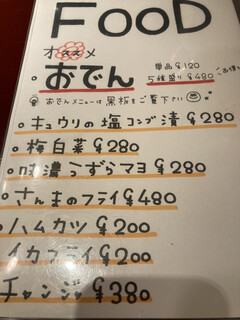 FOOD
オススメ
・おでん 単品 ¥120
5種盛り ¥480
おでんメニューは黒板をご覧下さい
・キュウリの塩コンブ漬 ¥280
・梅白菜 ¥280
・味濃うずらマヨ ¥280
・さんまのフライ ¥480
・ハムカツ ¥200
イカフライ ¥200
チャンジャ ¥380